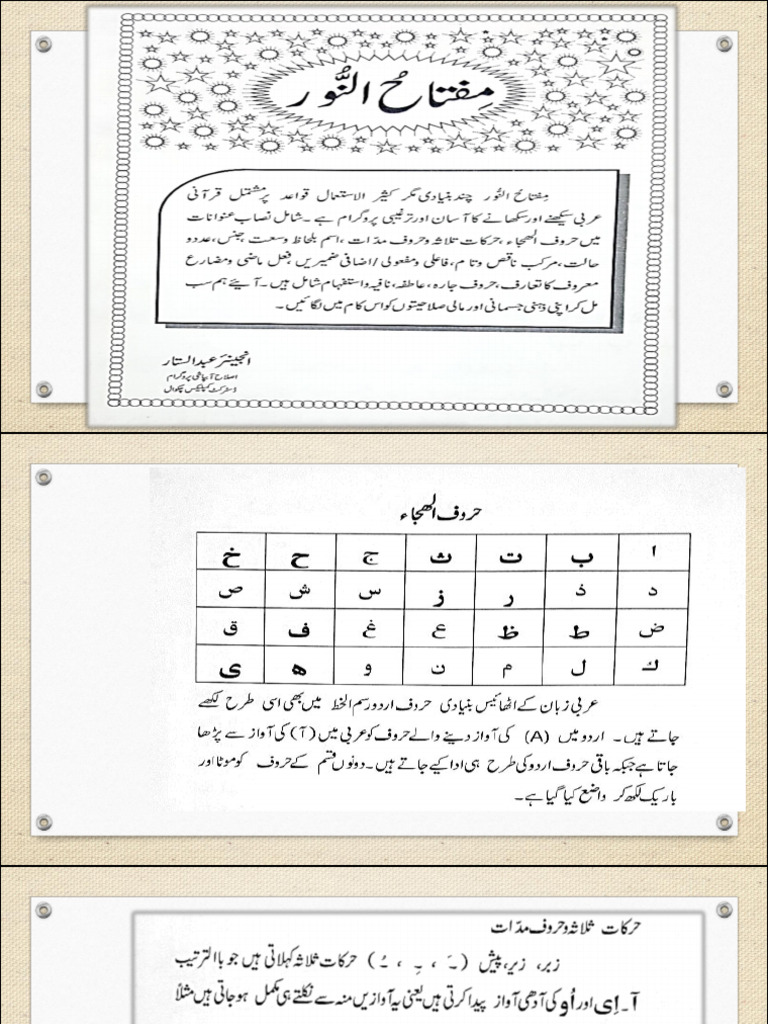 مِفتاحُ النُّور
مِفتاحُ النُّور چند بنیادی مگر کثیر الاستعمال قواعد پر مشتمل قرآنی
عربی سیکھنے اور سکھانے کا آسان اور ترغیبی پروگرام ہے۔ شامل نصاب عنوانات
میں حروف الھجاء، حرکات ثلاثہ و حروف مدّات، اسم بلحاظ وسعت، جنس، عدد و
حالت، مرکب ناقص و تام، فاعلی و مفعولی/اضافی ضمیریں، فعل ماضی و مضارع
معروف کا تعارف، حروف جارہ، عاطفہ، نافیہ و استفہام شامل ہیں۔ آیئے ہم سب
مل کر اپنی ذہنی جسمانی اور مالی صلاحیتوں کو اس کام میں لگائیں۔
انجینئر عبدالستار
اصلاح آبپاشی پروگرام
ڈسٹرکٹ کمپلیکس چکوال
حروف الھجاء
ا ب ت ث ج ح خ
د ذ ر ز س ش ص
ض ط ظ ع غ ف ق
ك ل م ن و ھ ی
عربی زبان کے اٹھائیس بنیادی حروف اردو رسم الخط میں بھی اسی طرح لکھے
جاتے ہیں۔ اردو میں (A) کی آواز دینے والے حروف کو عربی میں (آ) کی آواز سے پڑھا
جاتا ہے جبکہ باقی حروف اردو کی طرح ہی ادا کیے جاتے ہیں۔ دونوں قسم کے حروف کو موٹا اور
باریک لکھ کر واضع کیا گیا ہے۔
حرکات ثلاثہ و حروف مدّات
زبر، زیر، پیش (ـَ ، ـِ ، ـُ) حرکات ثلاثہ کہلاتی ہیں جو باالترتیب
آ۔ اِی اور اُو کی آدھی آواز پیدا کرتی ہیں یعنی یہ آوازیں منہ سے نکلتے ہی مکمل ہو جاتی ہیں مثلاً